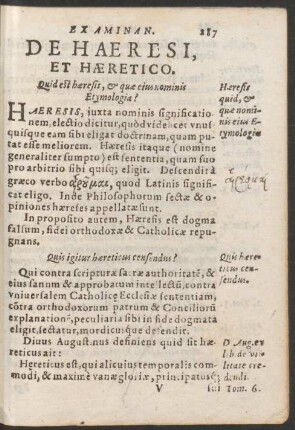 EXAMINAN. 287
DE HAERESI,
ET HÆRETICO.
Quid est hæresis, & quæ eius nominis
Etymologia?
Hæresis
quid, &
quæ nomi-
nis eius E-
tymologia
HAERESIS, iuxta nominis significatio-
nem, electio dicitur, quòd videlicet vnus
quisque eam sibi eligat doctrinam, quam pu-
tat esse meliorem. Hæresis itaque (nomine
generaliter sumpto) est sententia, quam suo
pro arbitrio sibi quisq; eligit. Descendit à
græco verbo αἱρουμαι, quod Latinis signifi-
cat eligo. Inde Philosophorum sectæ & o-
piniones hæreses appellatæ sunt.
In proposito autem, Hæresis est dogma
falsum, fidei orthodoxæ & Catholicæ repu-
gnans.
Quis igitur hæreticus censendus?
Quis hære-
ticus cen-
sendus.
Qui contra scripturæ sacræ authoritatē, &
eius sanum & approbatum intellectū, contra
vniuersalem Catholicę Ecclesiæ sententiam,
cōtra orthodoxorum patrum & Conciliorū
explanationē, peculiaria sibi in fide dogmata
eligit, sectatur, mordicusq́ue defendit.
Diuus August. nus definiens quid sit hæ
reticus ait:
D. Aug. ex
lib. de vti-
litate cre-
dendi.
Tom. 6.
Hęreticus est, qui alicuius temporalis com-
modi, & maximè vanægloriæ, principatusq́;
V sui